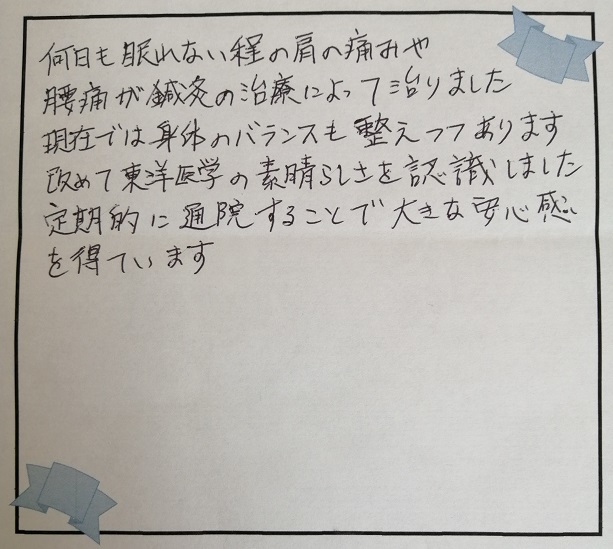 何日も眠れない程の肩の痛みや
腰痛が鍼灸の治療によって治りました
現在では身体のバランスも整えつつあります
改めて東洋医学の素晴らしさを認識しました
定期的に通院することで大きな安心感
を得ています